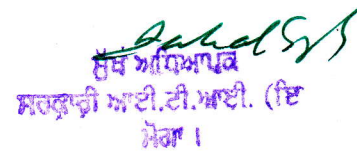 ਮੁੱਖ ਅਧਿਆਪਕ
ਸਰਕਾਰੀ ਆਈ.ਟੀ.ਆਈ. (ਇ
ਮੋਗਾ ।